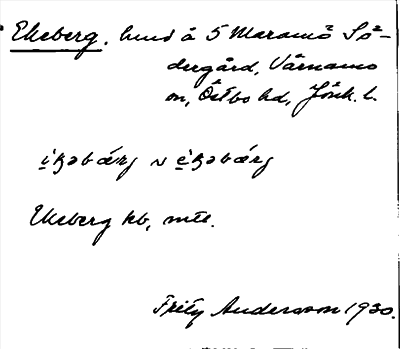 Ekeberg. hmd å 5 Maramö Sö-
dergård, Värnamo
sn, Östbo hd, Jönk. l.
Ekeberg kb, mtl.
Fritz Andersson 1930.